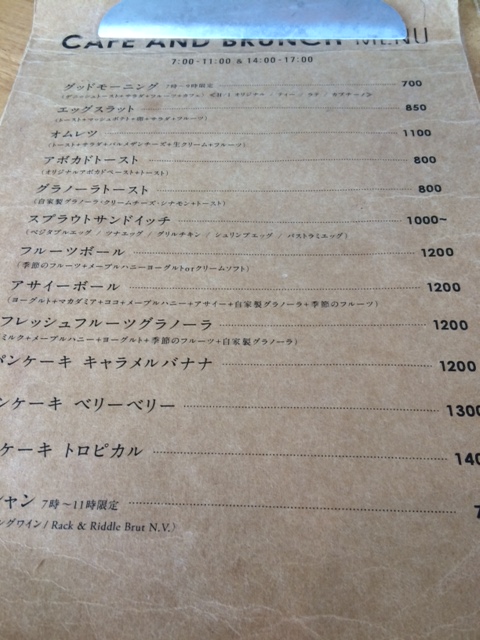 CAFE AND BRUNCH MENU
7:00-11:00 & 14:00-17:00
グッドモーニング 7時～9時限定 700
エッグスラット 850
(トースト+マッシュポテト+卵+サラダ+フルーツ)
オムレツ 1100
(トースト+サラダ+パルメザンチーズ+生クリーム+フルーツ)
アボカドトースト 800
(オリジナルアボカドペースト+トースト)
グラノーラトースト 800
(自家製グラノーラ・クリームチーズ・シナモン+トースト)
スプラウトサンドイッチ 1000~
(ベジタブルエッグ / ツナエッグ / グリルチキン / シュリンプエッグ / パストラミエッグ)
フルーツボール 1200
(季節のフルーツ+メープルハニーヨーグルトorクリームソフト)
アサイーボール 1200
(ヨーグルト+マカダミア+ココ+メープルハニー+アサイー+自家製グラノーラ+季節のフルーツ)
フレッシュフルーツグラノーラ 1200
ミルク+メープルハニー+ヨーグルト+季節のフルーツ+自家製グラノーラ)
パンケーキ キャラメルバナナ 1200
ンケーキ ベリーベリー 1300
ケーキ トロピカル 140
シャン 7時～11時限定 7
ングワイン / Rack & Riddle Brut N.V.)